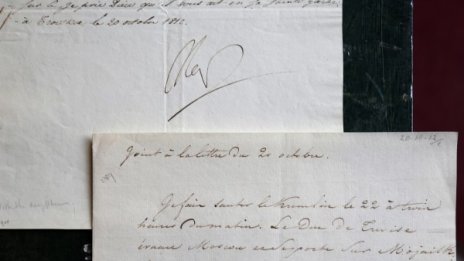 Sur ce je prie Dieu qu'il vous ait en sa sainte garde
le 20 octobre 1812.
Nap
Joint à la lettre du 20 octobre.
Je fais sauter le Kremlin le 22 à trois
heures du matin. Le Duc de Trévise
évacue Moscou se porte sur Mojaïsk